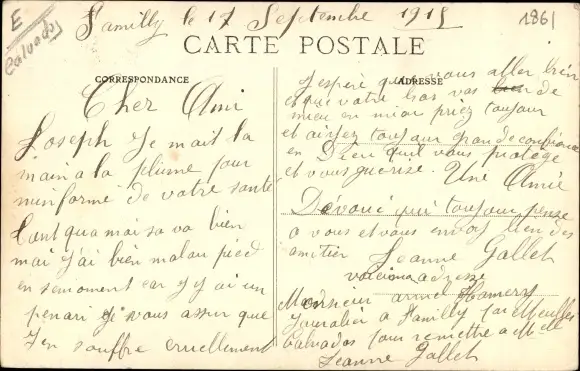 E
Calvados
1861
Familly le 17 Septembre 1915
CARTE POSTALE
CORRESPONDANCE
ADRESSE
Cher Ami
Joseph Je mait la
main a la plume pour
m'informé de votre santé
tant qua moi sa va bien
mai j'ai bien mal au pied
en se moment car j'y ai un
penari Je vous assur que
J'en souffre cruellement
J'espère que vous aller bien
et que votre bras vas de
mieu en mieu priez toujour
et aiyez toujour grande confiance
en Dieu qu'il vous protège
et vous guerize. Une Amie
Dévoué qui toujour pense
a vous et vous envoy bien des
amitier Jeanne Gallet
voici mon adresse
Monsieur armel Hamery
Journalier à Familly par Meulles
Calvados pour remettre a Melle
Jeanne Gallet